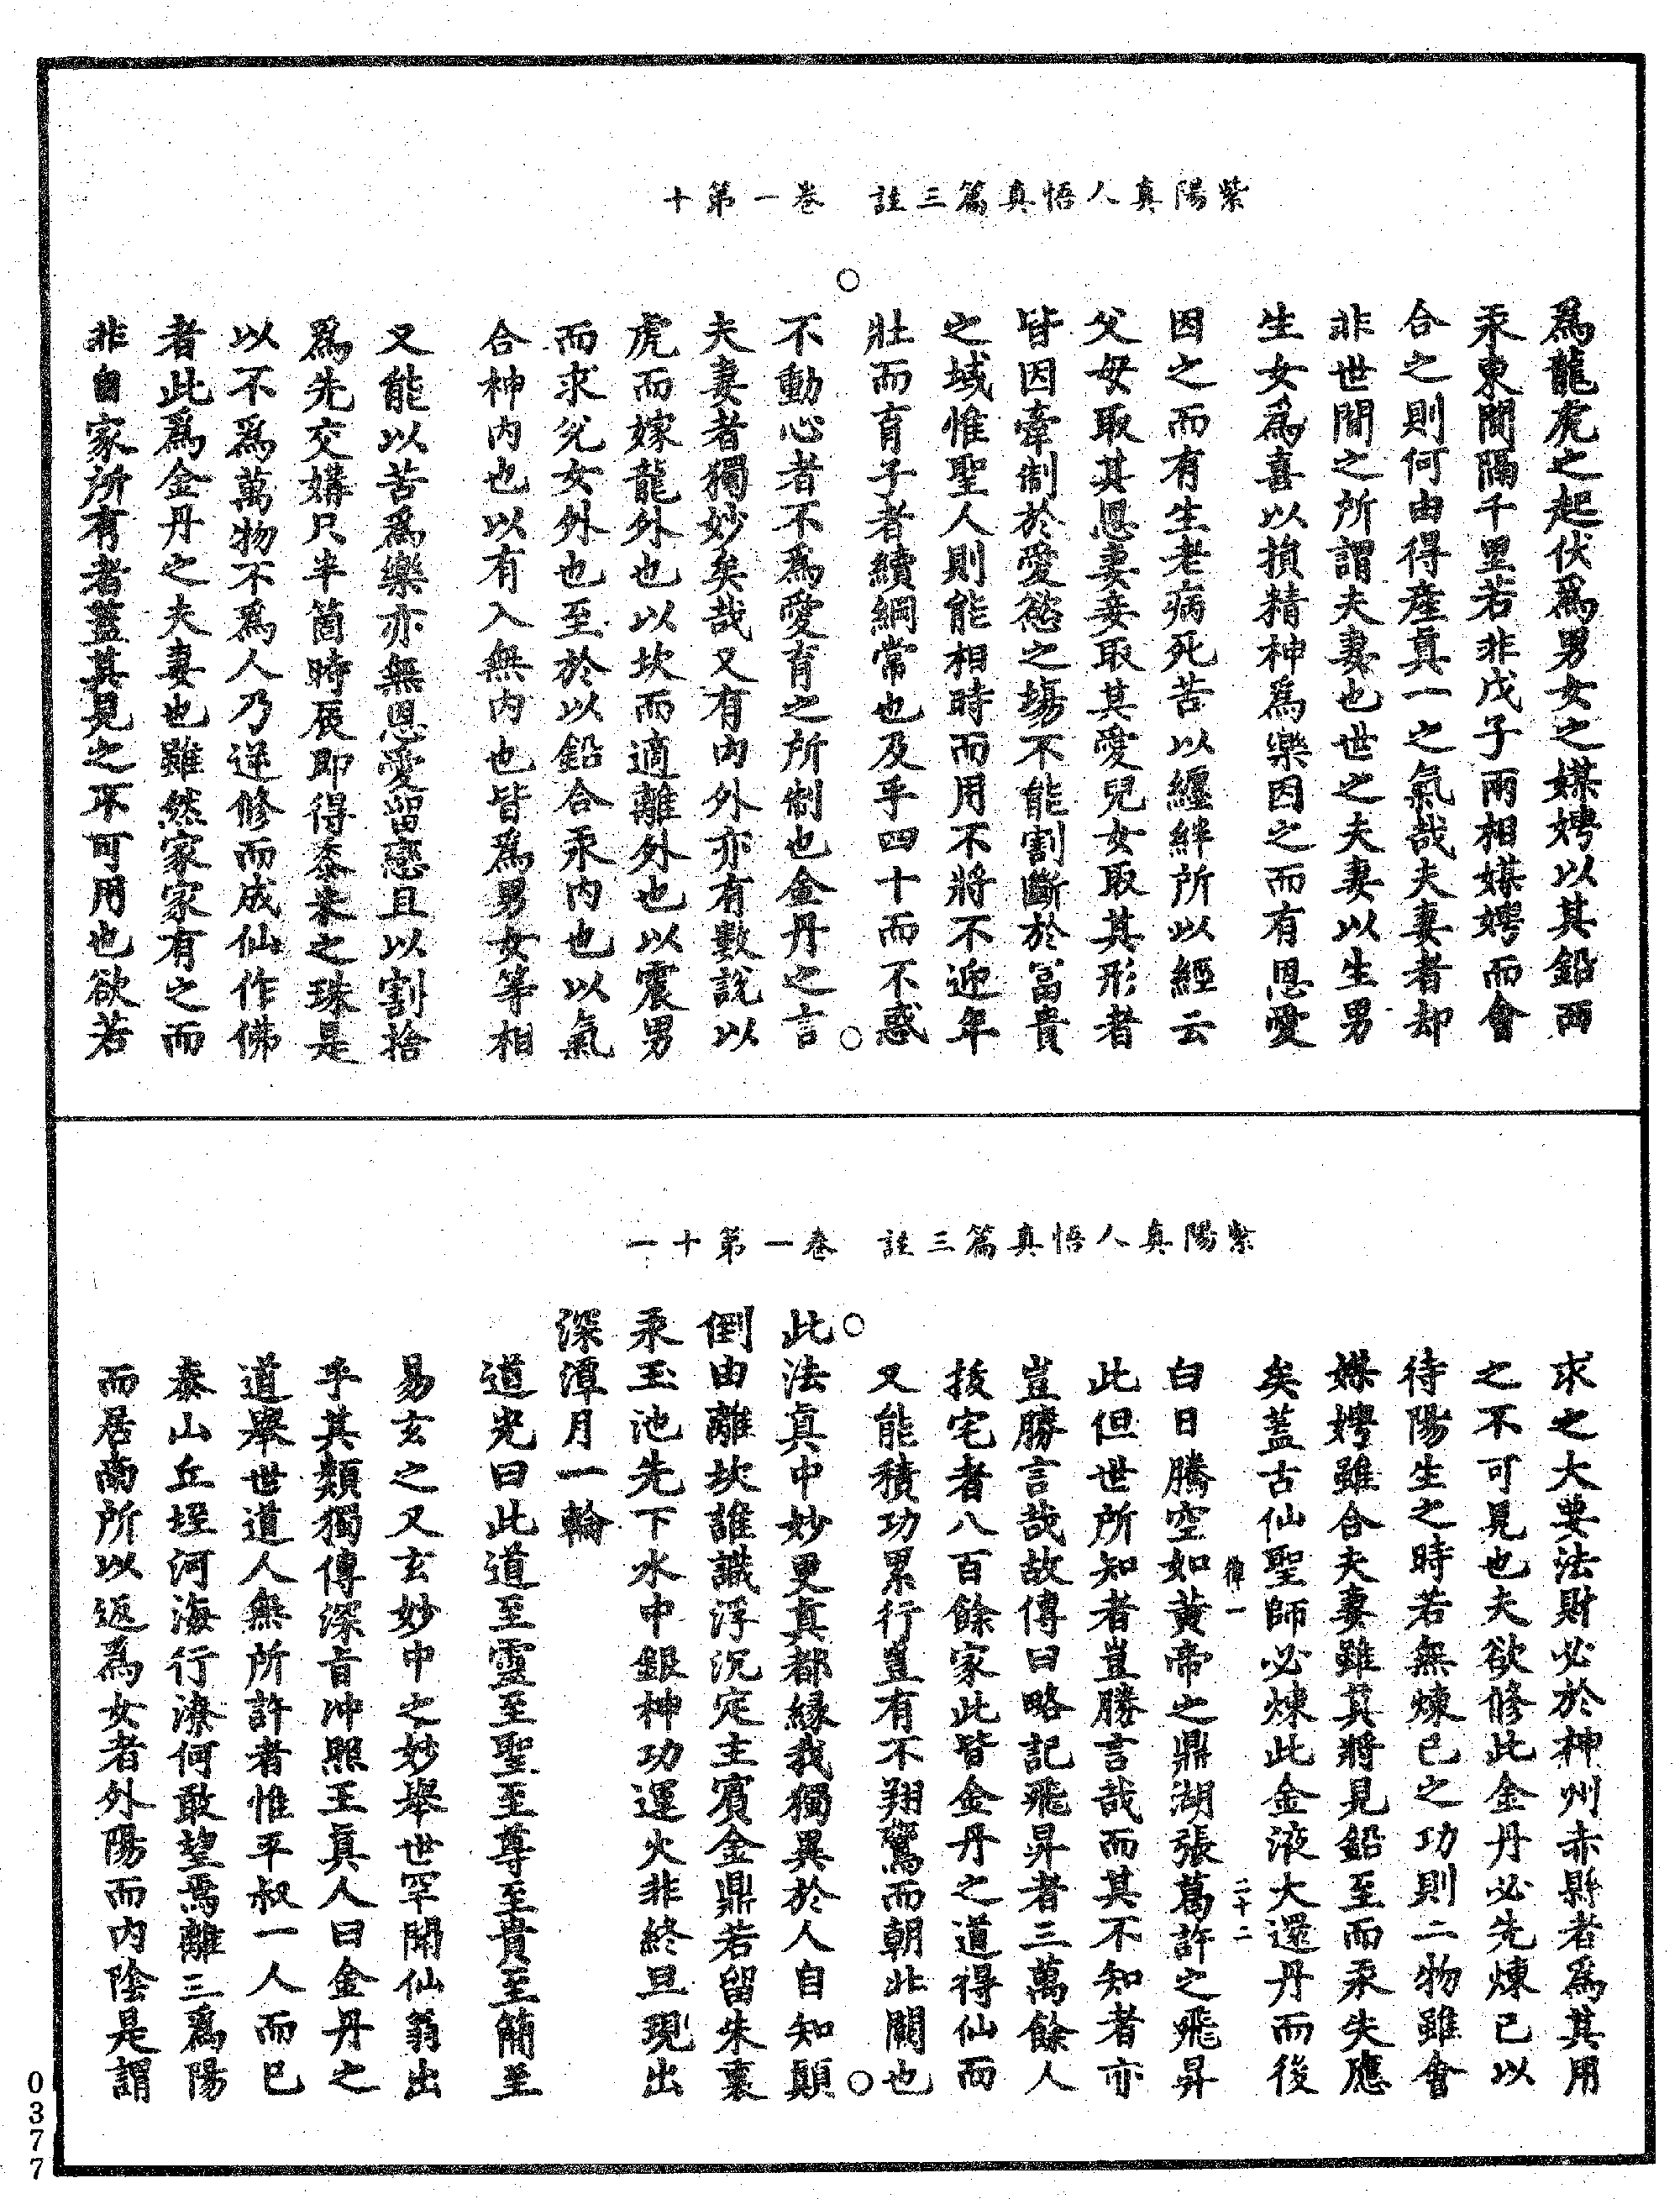 紫陽真人悟真篇三註　卷一第十
爲龍虎之起伏爲男女之媒娉以其鉛西
汞東間隔千里若非戊子兩相媒娉而會
合之則何由得產真一之氣哉夫妻者却
非世間之所謂夫妻也世之夫妻以生男
生女爲喜以損精神爲樂因之而有恩愛
因之而有生老病死苦以纏絆所以經云
父母取其恩妻妾取其愛兒女取其形者
皆因牽制於愛慾之場不能割斷於冨貴
之域惟聖人則能相時而用不將不迎年
壯而育子者續綱常也及乎四十而不惑
不動心者不爲愛育之所制也金丹之言
夫妻者獨妙矣哉又有內外亦有數說以
虎而嫁龍外也以坎而適離外也以震男
而求兊女外也至於以鉛合汞內也以氣
合神內也以有入無內也皆爲男女等相
又能以苦爲樂亦無恩愛留戀且以割捨
爲先交媾只半箇時辰即得黍米之珠是
以不爲萬物不爲人乃逆修而成仙作佛
者此爲金丹之夫妻也雖然家家有之而
非自家所有者蓋其見之不可用也欲若
紫陽真人悟真篇三註　卷一第十一
求之大要法財必於神州赤縣者爲其用
之不可見也夫欲修此金丹必先煉己以
待陽生之時若無煉己之功則二物雖會
媒娉雖合夫妻雖真將見鉛至而汞失應
矣蓋古仙聖師必煉此金液大還丹而後
律一　二十二
白日騰空如黃帝之鼎湖張葛許之飛昇
此但世所知者豈勝言哉而其不知者亦
豈勝言哉故傳曰略記飛昇者三萬餘人
拔宅者八百餘家此皆金丹之道得仙而
又能積功累行豈有不翔鸞而朝北闕也
此法真中妙更真都緣我獨異於人自知顛
倒由離坎誰識浮沉定主賓金鼎若留朱裏
汞玉池先下水中銀神功運火非終旦現出
深潭月一輪
道光曰此道至靈至聖至尊至貴至簡至
易玄之又玄妙中之妙舉世罕聞仙翁出
乎其類獨傳深旨冲熙王真人曰金丹之
道舉世道人無所許者惟平叔一人而已
泰山丘垤河海行潦何敢望焉離三爲陽
而居南所以返爲女者外陽而內陰是謂
0377